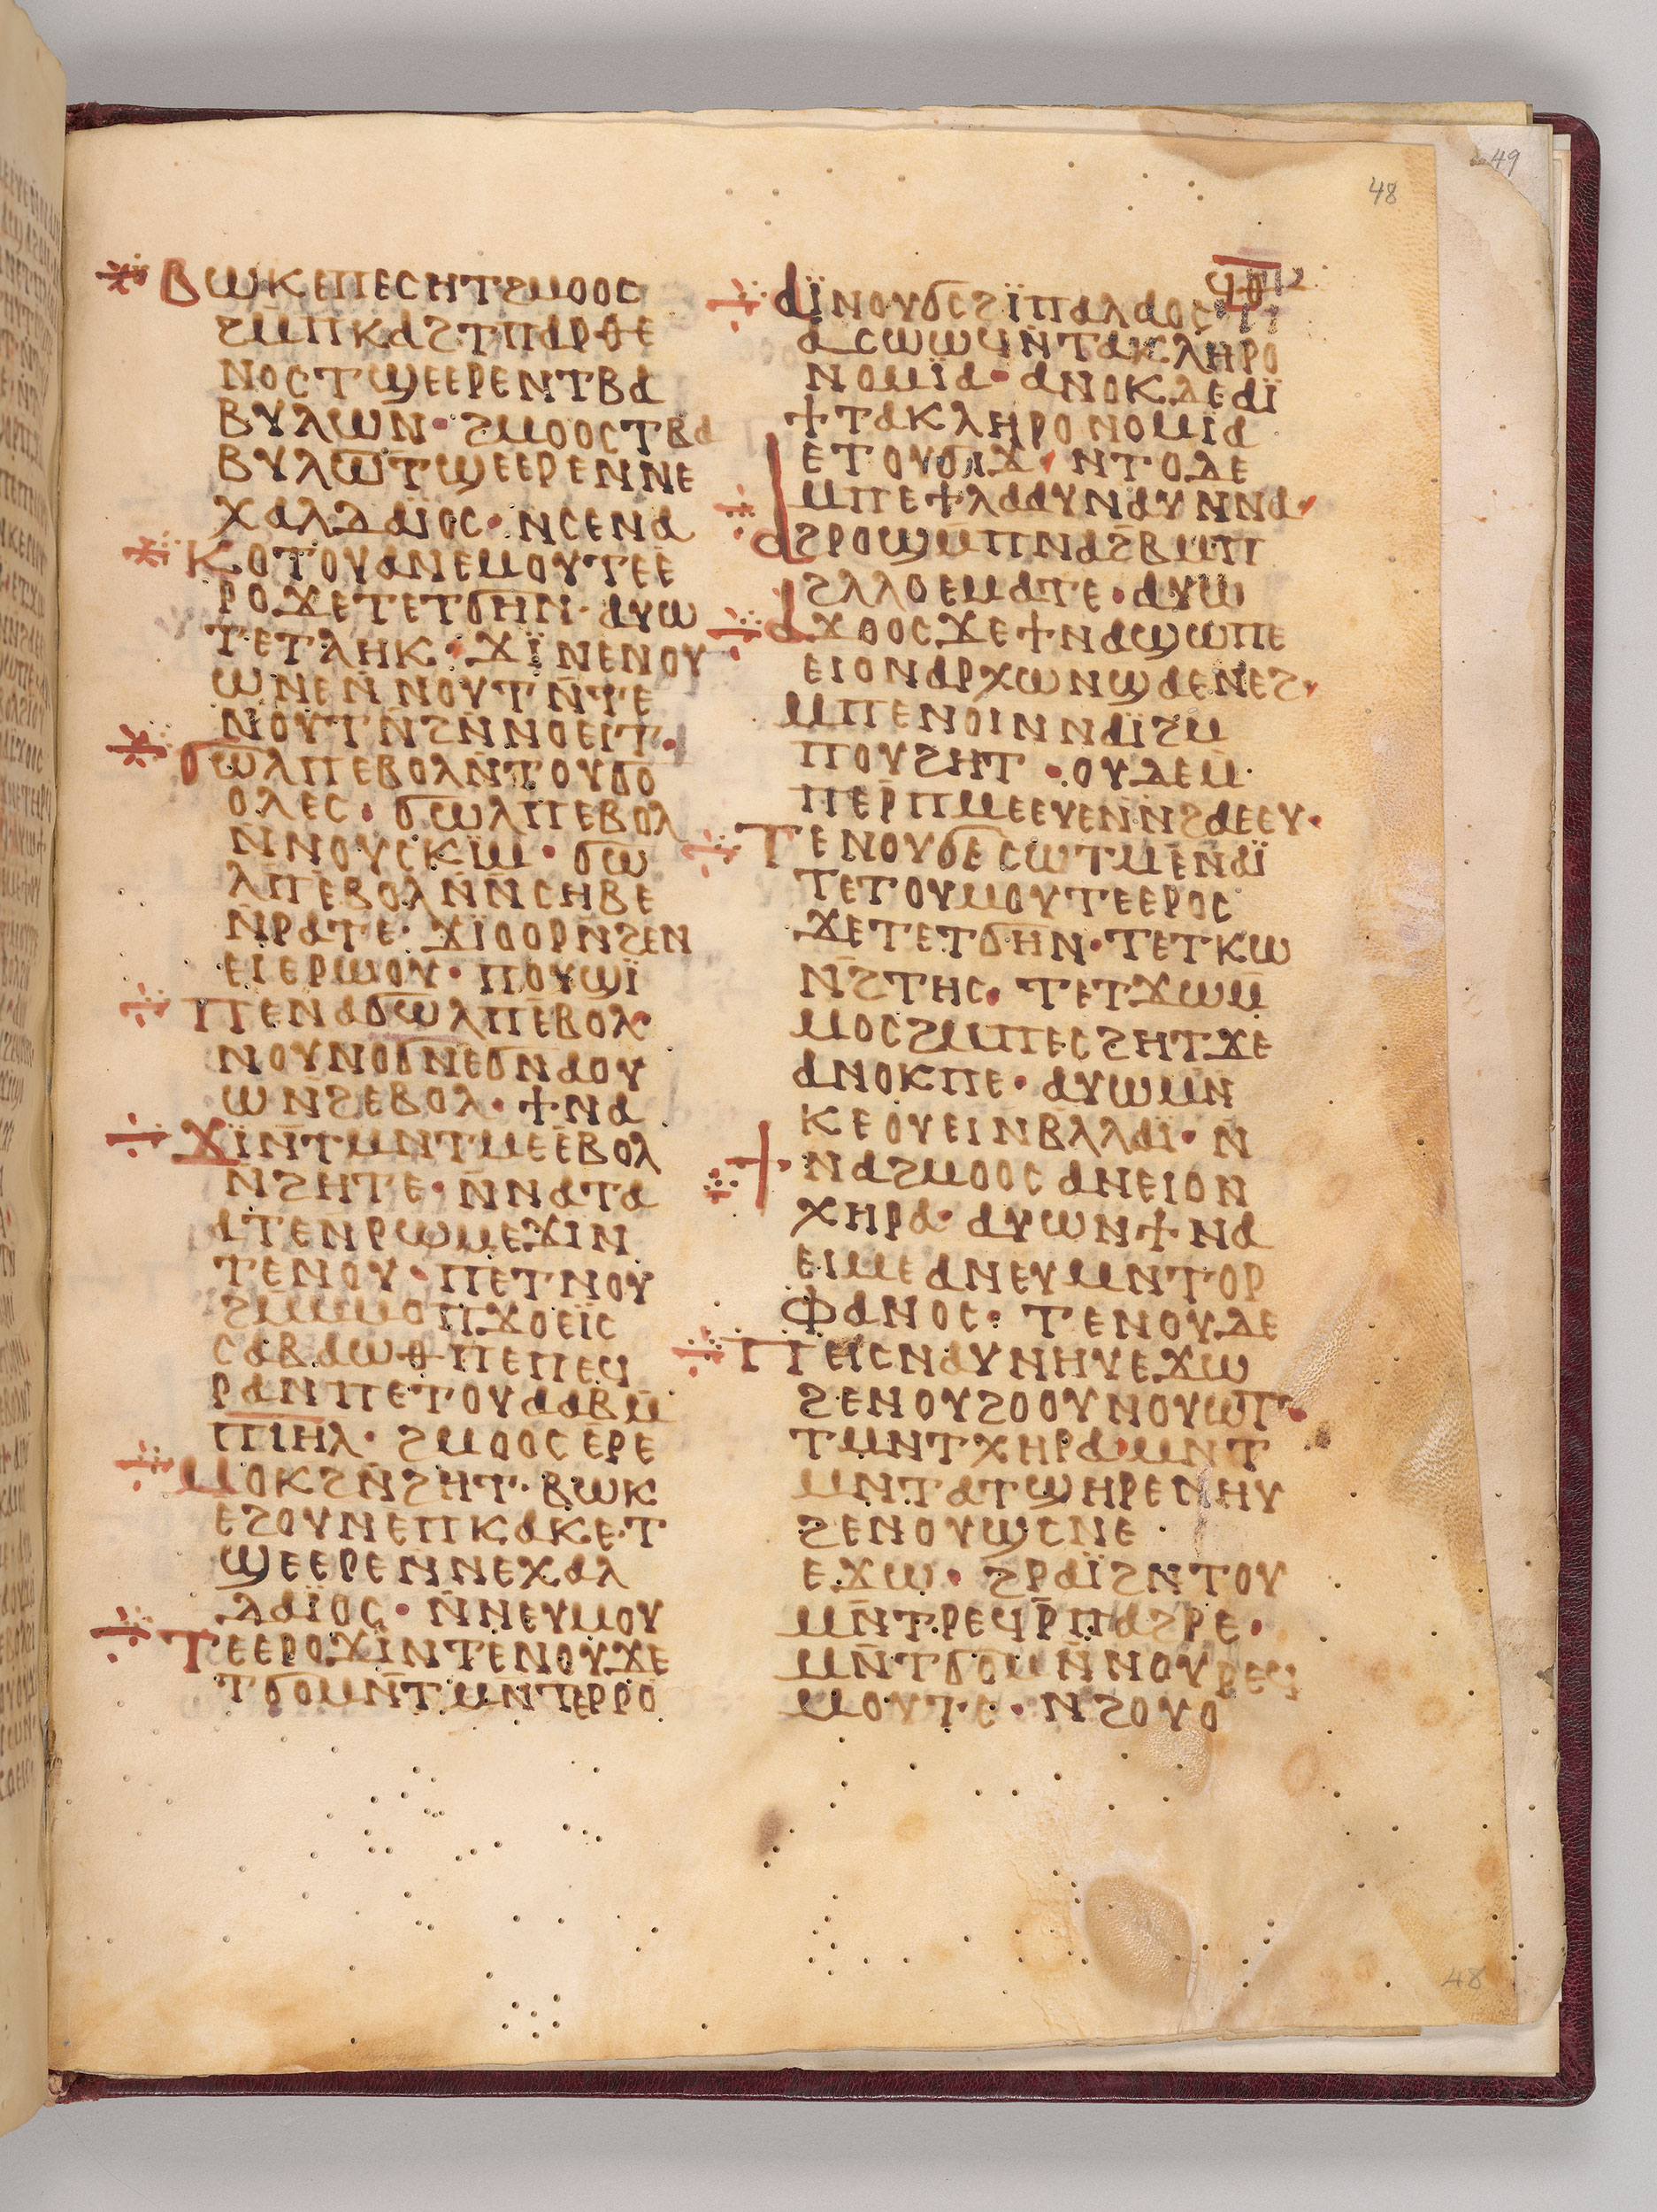 48
49
ϤⲐ
ⲂⲰⲔⲈⲠⲈⲤⲎⲦϨⲘⲞⲞⲤ
ϨⲘ̄ⲠⲔⲀϨ·ⲦⲠⲀⲢⲐⲈ
ⲚⲞⲤⲦϢⲈⲈⲢⲈⲚⲦⲂⲀ
ⲂⲨⲖⲰⲚ· ϨⲘⲞⲞⲤⲦⲂⲀ
ⲂⲨⲖⲰ̄ⲦϢⲈⲈⲢⲈⲚⲚⲈ
ⲬⲀⲖⲆⲀⲒ̈ⲞⲤ· ⲚⲤⲈⲚⲀ
ⲔⲞⲦⲞⲨⲀⲚⲈⲘⲞⲨⲦⲈⲈ
ⲢⲞϪⲈⲦⲈⲦϬⲎⲚ· ⲀⲨⲰ
ⲦⲈⲦⲖⲎⲔ· ϪⲒ̈ⲚⲈⲚⲞⲨ
ⲰⲚⲈⲚ̄ⲚⲞⲨⲦⲚ̄ⲦⲈ
ⲚⲞⲨⲦⲚ̄ϨⲚ̄ⲚⲞⲈⲒⲦ·
ϬⲰⲖⲠⲈⲂⲞⲖⲚⲦⲞⲨϬⲞ
ⲞⲖⲈⲤ· ϬⲰⲖⲠⲈⲂⲞⲖ
Ⲛ̄ⲚⲞⲨⲤⲔⲒ̈Ⲙ· ϬⲰ
ⲖⲠⲈⲂⲞⲖⲚ̄Ⲛ̄ⲤⲎⲂⲈ
Ⲛ̄ⲢⲀⲦⲈ· ϪⲒⲞⲞⲢⲚ̄ϨⲈⲚ
ⲈⲒⲈⲢⲰⲞⲨ· ⲠⲞⲨϢⲒ̈
ⲠⲈⲚⲀϬⲰⲖⲠⲈⲂⲞⲖ·
ⲚⲞⲨⲚⲞϬⲚⲈϬⲚⲀⲞⲨ
ⲰⲚ̄ϨⲈⲂⲞⲖ· ϮⲚⲀ
ϪⲒ̈Ⲛ̄ⲦⲘⲚⲦⲘⲈⲈⲂⲞⲖ
Ⲛ̄ϨⲎⲦⲈ· Ⲛ̄ⲚⲀⲦⲀ
ⲀⲦⲈⲚ̄ⲢⲰⲘⲈϪⲒⲚ
ⲦⲈⲚⲞⲨ· ⲠⲈⲦⲚⲞⲨ
ϨⲘ̄ⲘⲘⲞⲠϪⲞⲈⲒ̈Ⲥ
ⲤⲀⲂⲀⲰⲐⲠⲈⲠⲈϤ
ⲢⲀⲚⲠⲈⲦⲞⲨⲀⲀⲂⲘ̄
ⲠⲒⲎⲖ· ϨⲘⲞⲞⲤⲈⲢⲈ
ⲘⲞⲔϨⲚ̄ϨⲎⲦ· ⲂⲰⲔ
ⲈϨⲞⲨⲚⲈⲠⲔⲀⲔⲈ·Ⲧ
ϢⲈⲈⲢⲈⲚ̄ⲚⲈⲬⲀⲖ
ⲆⲀⲒ̈ⲞⲤ· Ⲛ̄ⲚⲈⲨⲘⲞⲨ
ⲦⲈⲈⲢⲞϪⲒ̈ⲚⲦⲈⲚⲞⲨϪⲈ
ⲦϬⲞⲘⲚ̄ⲦⲘⲚⲦⲈⲢⲢⲞ
ⲀⲒ̈ⲚⲞⲨϬⲤϨⲒ̈ⲠⲀⲖⲀⲞⲤ·
ⲀⲤⲰⲰϤⲚ̄ⲦⲀⲔⲖⲎⲢⲞ
ⲚⲞⲘⲒ̈Ⲁ· ⲀⲚⲞⲔⲆⲈⲀⲒ̈
ϮⲦⲀⲔⲖⲎⲢⲞⲚⲞⲘⲒⲀ
ⲈⲦⲞⲨϬⲒϪ· ⲚⲦⲞⲆⲈ
ⲘⲠⲈϮⲖⲀⲀⲨⲚⲀⲨⲚⲚⲀ·
ⲀϨⲢⲞϢⲘ̄ⲠⲚⲀϨⲂⲘ̄Ⲡ
ϨⲖⲖⲞⲈⲘⲀⲦⲈ· ⲀⲨⲰ
ⲀϪⲞⲞⲤϪⲈϮⲚⲀϢⲰⲠⲈ
ⲈⲒⲞⲚⲀⲢⲬⲰⲚϢⲀⲈⲚⲈϨ·
ⲘⲠⲈⲚⲞⲒⲚⲚⲀⲒ̈ϨⲘ
ⲠⲞⲨϨⲎⲦ· ⲞⲨⲆⲈⲘ̄
ⲠⲈⲢ̄ⲠⲘⲈⲈⲨⲈⲚ̄ⲚϨⲀⲈⲈⲨ·
ⲦⲈⲚⲞⲨϬⲈⲤⲰⲦⲘⲈⲚⲀⲒ̈
ⲦⲈⲦⲞⲨⲘⲞⲨⲦⲈⲈⲢⲞⲤ
ϪⲈⲦⲈⲦϬⲎⲚ· ⲦⲈⲦⲔⲰ
Ⲛ̄ϨⲦⲎⲤ· ⲦⲈⲦϪⲰⲘ̄
ⲘⲞⲤϨⲘ̄ⲠⲈⲤϨⲎⲦϪⲈ
ⲀⲚⲞⲔⲠⲈ· ⲀⲨⲰⲘⲚ̄
ⲔⲈⲞⲨⲈⲒⲚⲂⲖⲖⲀⲒ̈· Ⲛ
ϮⲚⲀϨⲘⲞⲞⲤⲀⲚⲈⲒⲞⲚ
ⲬⲎⲢⲀ· ⲀⲨⲰⲚϮⲚⲀ
ⲈⲒⲘⲈⲀⲚⲈⲨⲘⲚⲦⲞⲢ
ⲪⲀⲚⲞⲤ· ⲦⲈⲚⲞⲨⲆⲈ
ⲠⲈⲒⲤⲚⲀⲨⲚⲎⲨⲈϪⲰ
ϨⲈⲚⲞⲨϨⲞⲞⲨⲚⲞⲨⲰⲦ·
ⲦⲘⲚⲦⲬⲎⲢⲀ·ⲘⲚⲦ
ⲘⲚⲦⲀⲦϢⲎⲢⲈⲚⲎⲨ
ϨⲈⲚⲞⲨϢⲤⲚⲈ·
ⲈϪⲰ· ϨⲢⲀⲒ̈ϨⲚⲦⲞⲨ
ⲘⲚ̄ⲦⲢⲈϤⲢ̄ⲠⲀϨⲢⲈ·
ⲘⲚ̄ⲦϬⲞⲘⲚ̄ⲚⲞⲨⲢⲈϤ
ⲘⲞⲨⲦⲈ· ⲚϨⲞⲨⲞ
48